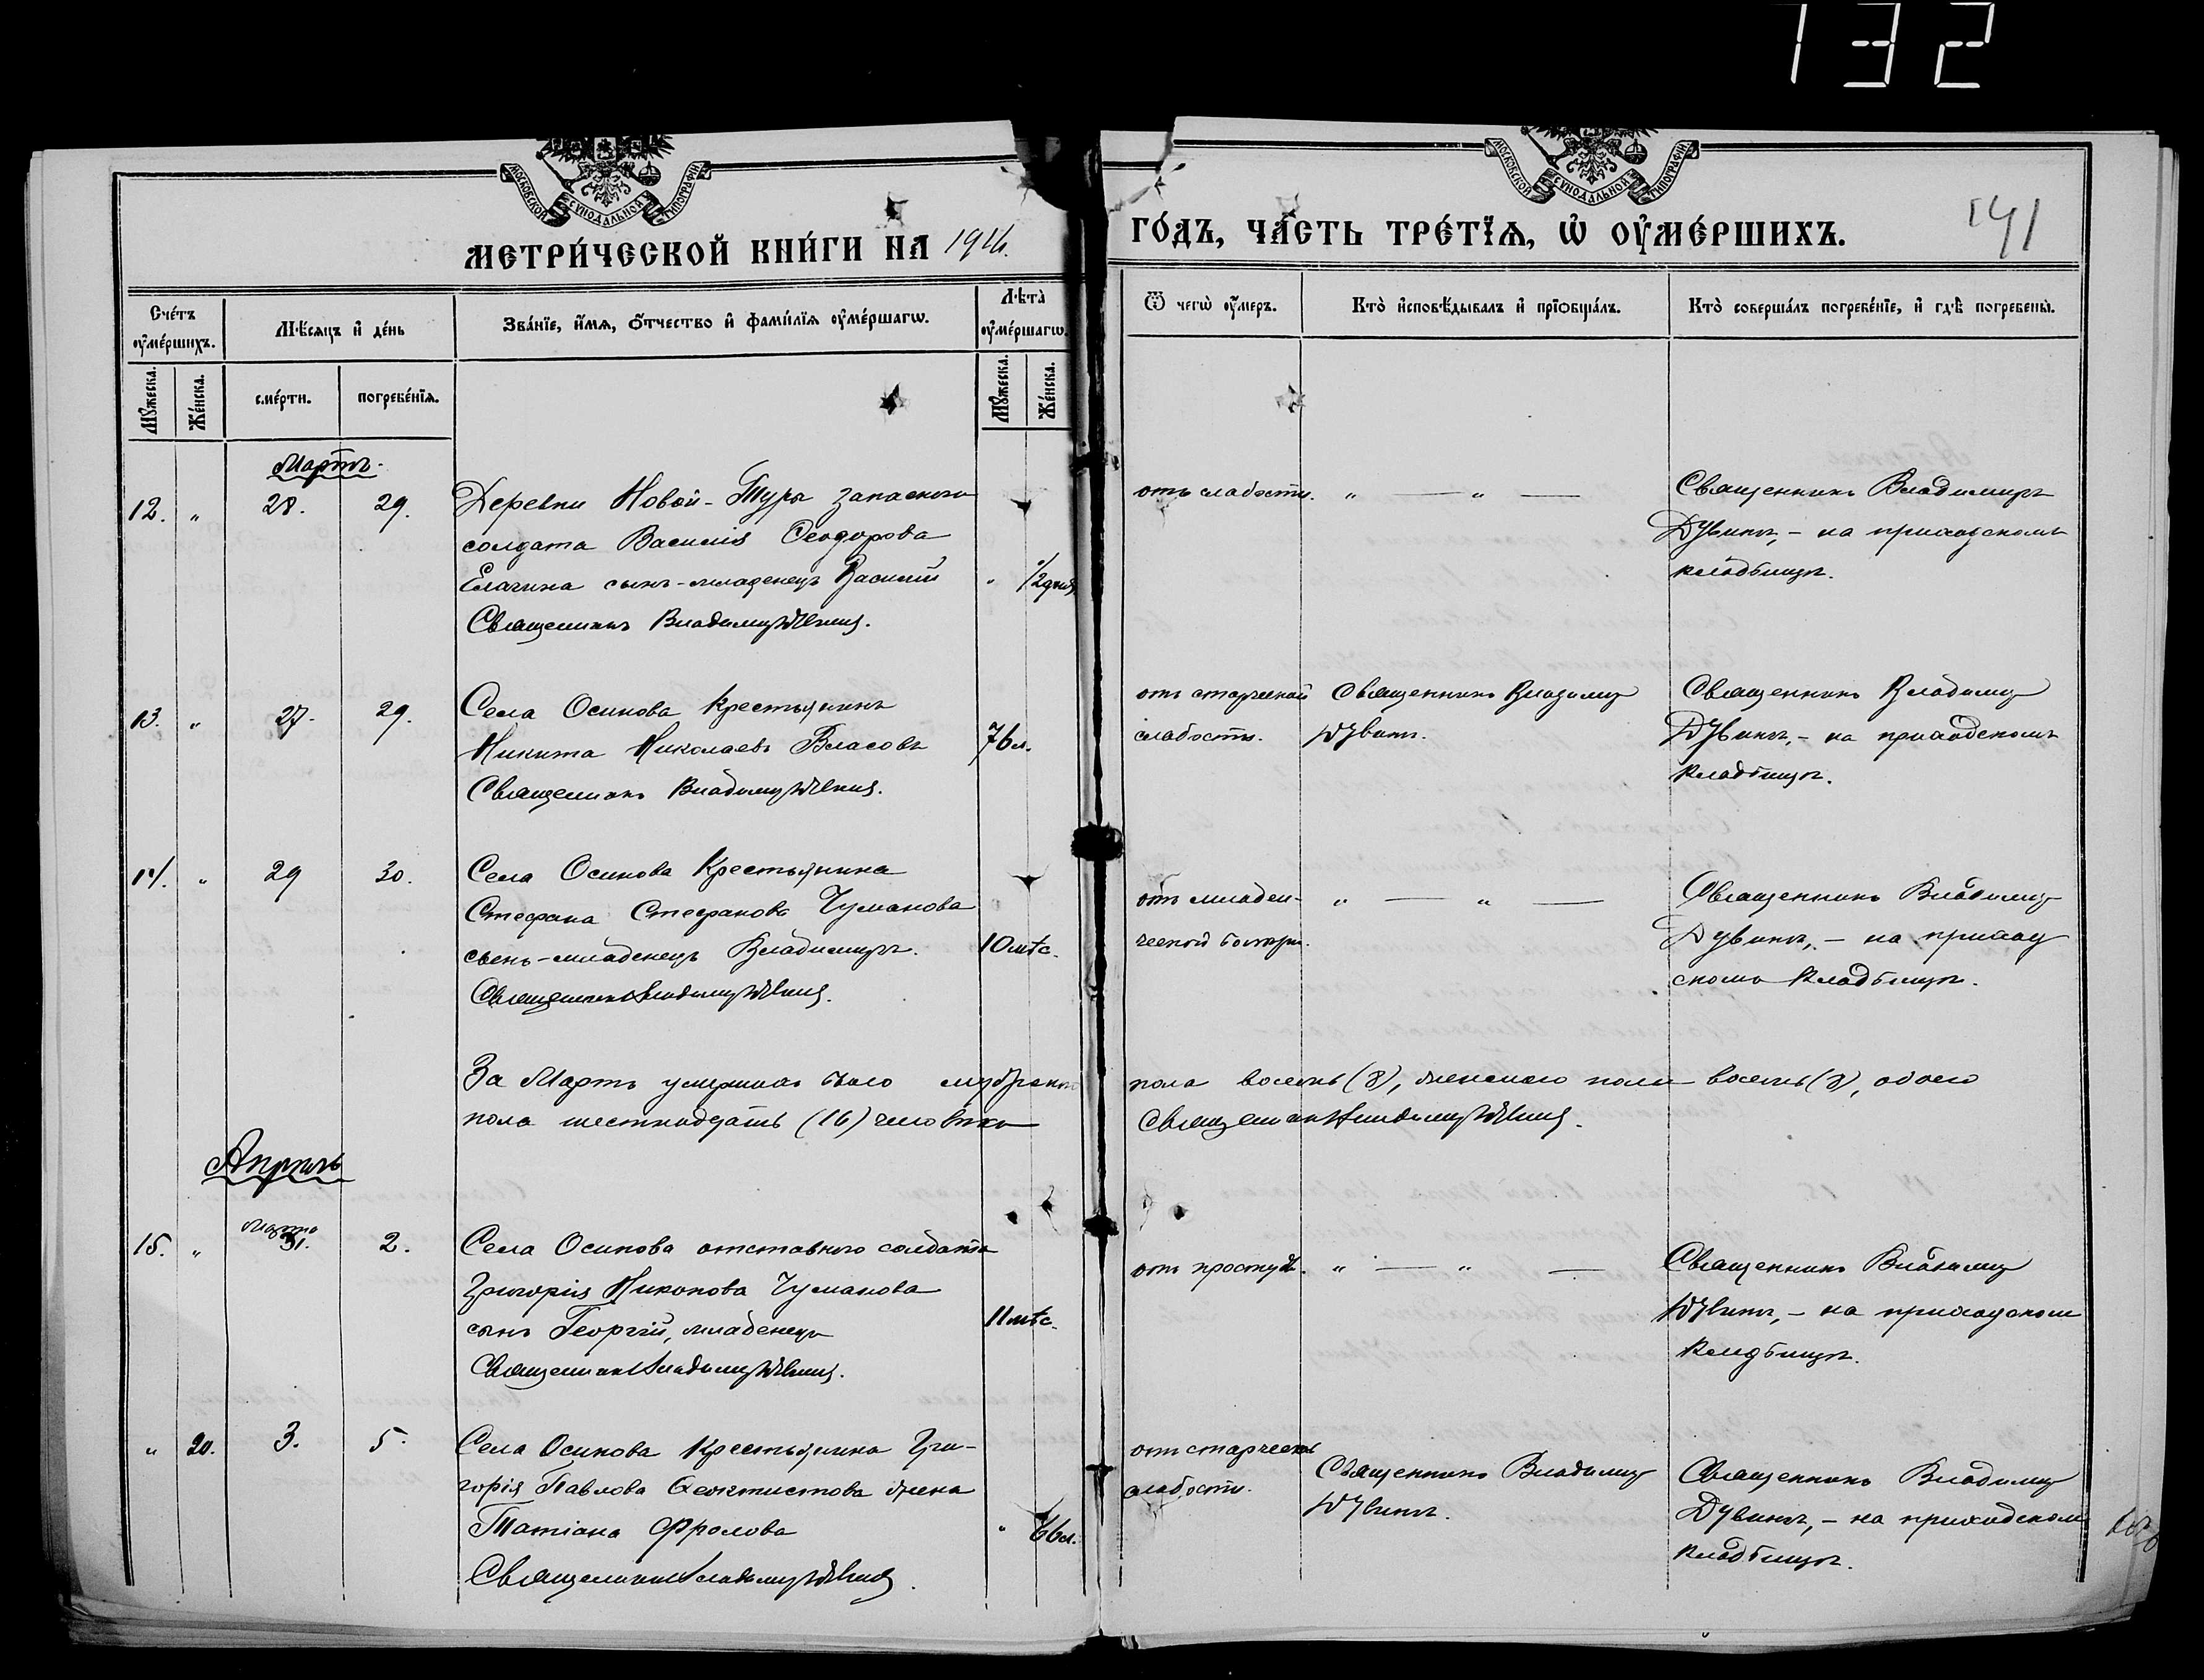 132
МОСКОВСКОЙ СУНОДАЛЬНОЙ ТИПОГРАФІИ
МОСКОВСКОЙ СУНОДАЛЬНОЙ ТИПОГРАФІИ
МЕТРИ́ЧЕСКОЙ КНИ́ГИ НА
ГО́ДЪ, ЧА́СТЬ ТРЕ́ТІѦ, Ѡ҆ ОУ҆МЕ́РШИХЪ.
141
Сче́тъ оу҆ме́ршихъ.
Мѣ́сѧцъ и҆ де́нь
Зва́нїе, и҆́мѧ, ѻ҆́тчество и҆ фами́лїѧ оу҆ме́ршагѡ.
Лѣта̀ оу҆ме́ршагѡ.
Ѿ чегѡ̀ оу҆́меръ.
Кто̀ и҆сповѣ́дывалъ и҆ прїѡбща́лъ.
Кто̀ соверша́лъ погребе́нїе, и҆ гдѣ̀ погребены̀.
Мꙋ́жеска.
Же́нска.
сме́рти.
погребе́нїѧ.
Мꙋ́жеска.
Же́нска.
Мартъ.
12. " 28. 29. Деревни Новой-Туры запаснаго
солдата Василія Ѳеодорова
Елагина сынъ-младенецъ Василій
Священникъ Владиміръ Дувинъ.
отъ слабости. " — " —
Священникъ Владиміръ
Дувинъ, – на приходскомъ
кладбищѣ.
13. " 27. 29. Села Осинова крестьянинъ
Никита Николаевъ Власовъ 76 л.
Священникъ Владиміръ Дувинъ.
отъ старческой
слабости.
Священникъ Владиміръ
Дувинъ.
Священникъ Владиміръ
Дувинъ, – на приходскомъ
кладбищѣ.
14. " 29 30. Села Осинова крестьянина
Стефана Стефанова Чуманова
сынъ-младенецъ Владиміръ. 10 мѣс.
Священникъ Владиміръ Дувинъ.
отъ младен-
ческой " — " —
Священникъ Владиміръ
Дувинъ, – на приход
скомъ кладбищѣ.
За Мартъ умершихъ было мужского пола восемь (8), женскаго пола восемь (8), обоего
пола шестнадцать (16) человѣкъ Священникъ Владиміръ Дувинъ.
Апрѣль
15. " Марта 31. 2. Села Осинова отставного солдата
Григорія Никонова Чуманова
сынъ Георгій, младенецъ 11 мѣс.
Священникъ Владиміръ Дувинъ.
отъ простуды. " — " —
Священникъ Владиміръ
Дувинъ, – на приходском
кладбищѣ.
" 20. 3. 5. Села Осинова крестьянина Гри-
горія Павлова Ѳеоктистова жена
Татіана Фролова " 66 л.
Священникъ Владиміръ Дувинъ.
отъ старческой
слабости.
Священникъ Владиміръ
Дувинъ.
Священникъ Владиміръ
Дувинъ, – на приходском
кладбищѣ.